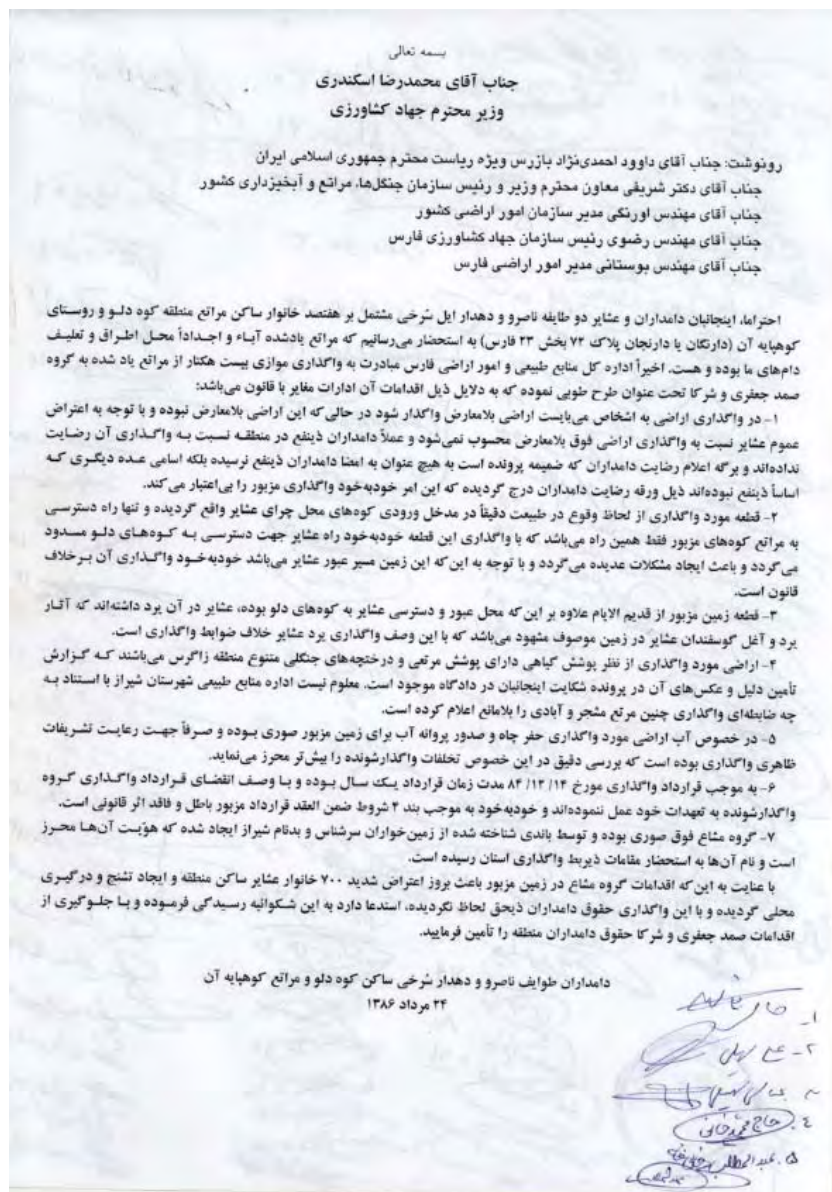 بسمه تعالی
جناب آقای محمدرضا اسکندری
وزیر محترم جهاد کشاورزی
رونوشت: جناب آقای داوود احمدی‌نژاد بازرس ویژه ریاست محترم جمهوری اسلامی ایران
جناب آقای دکتر شریفی معاون محترم وزیر و رئیس سازمان جنگل‌ها، مراتع و آبخیزداری کشور
جناب آقای مهندس اورنگی مدیر سازمان امور اراضی کشور
جناب آقای مهندس رضوی رئیس سازمان جهاد کشاورزی فارس
جناب آقای مهندس بوستانی مدیر امور اراضی فارس
احتراما، اینجانبان دامداران و عشایر دو طایفه ناصرو و دهدار ایل سُرخی مشتمل بر هفتصد خانوار ساکن مراتع منطقه کوه دلو و روستای
کوهپایه آن (دارنگان یا دارنجان پلاک ۷۲ بخش ۲۳ فارس) به استحضار می‌رسانیم که مراتع یادشده آباء و اجداداً محل اطراق و تعلیف
دام‌های ما بوده و هست. اخیراً اداره کل منابع طبیعی و امور اراضی فارس مبادرت به واگذاری موازی بیست هکتار از مراتع یاد شده به گروه
صمد جعفری و شرکا تحت عنوان طرح طوبی نموده که به دلایل ذیل اقدامات آن ادارات مغایر با قانون می‌باشد:
۱- در واگذاری اراضی به اشخاص می‌بایست اراضی بلامعارض واگذار شود در حالی‌که این اراضی بلامعارض نبوده و با توجه به اعتراض
عموم عشایر نسبت به واگذاری اراضی فوق بلامعارض محسوب نمی‌شود و عملاً دامداران ذینفع در منطقه نسبت به واگذاری آن رضایت
نداده‌اند و برگه اعلام رضایت دامداران که ضمیمه پرونده است به هیچ عنوان به امضا دامداران ذینفع نرسیده بلکه اسامی عده دیگری که
اساساً ذینفع نبوده‌اند ذیل ورقه رضایت دامداران درج گردیده که این امر خودبه‌خود واگذاری مزبور را بی‌اعتبار می کند.
۲- قطعه مورد واگذاری از لحاظ وقوع در طبیعت دقیقاً در مدخل ورودی کوه‌های محل چرای عشایر واقع گردیده و تنها راه دسترسی
به مراتع کوه‌های مزبور فقط همین راه می‌باشد که با واگذاری این قطعه خودبه‌خود راه عشایر جهت دسترسی به کوه‌های دلو مسدود
می گردد و باعث ایجاد مشکلات عدیده می‌گردد و با توجه به این‌که این زمین مسیر عبور عشایر می‌باشد خودبه‌خود واگذاری آن برخلاف
قانون است.
۳- قطعه زمین مزبور از قدیم الایام علاوه بر این‌که محل عبور و دسترسی عشایر به کوه‌های دلو بوده، عشایر در آن یرد داشته‌اند که آثار
یرد و آغل گوسفندان عشایر در زمین موصوف مشهود می‌باشد که با این وصف واگذاری یرد عشایر خلاف ضوابط واگذاری است.
۴- اراضی مورد واگذاری از نظر پوشش گیاهی دارای پوشش مرتعی و درختچه‌های جنگلی متنوع منطقه زاگرس می‌باشند که گزارش
تأمین دلیل و عکس‌های آن در پرونده شکایت اینجانبان در دادگاه موجود است. معلوم نیست اداره منابع طبیعی شهرستان شیراز با استناد به
چه ضابطه‌ای واگذاری چنین مرتع مشجر و آبادی را بلامانع اعلام کرده است.
۵- در خصوص آب اراضی مورد واگذاری حفر چاه و صدور پروانه آب برای زمین مزبور صوری بوده و صرفاً جهت رعایت تشریفات
ظاهری واگذاری بوده است که بررسی دقیق در این خصوص تخلفات واگذارشونده را بیش‌تر محرز می‌نماید.
۶- به موجب قرارداد واگذاری مورخ ۱۴/ ۱۲/ ۸۴ مدت زمان قرارداد یک سال بوده و با وصف انقضای قرارداد واگذاری گروه
واگذارشونده به تعهدات خود عمل ننموده‌اند و خودبه‌خود به موجب بند ۴ شروط ضمن العقد قرارداد مزبور باطل و فاقد اثر قانونی است.
۷- گروه مشاع فوق صوری بوده و توسط باندی شناخته شده از زمین‌خواران سرشناس و بدنام شیراز ایجاد شده که هوّیت آن‌ها محرز
است و نام آن‌ها به استحضار مقامات ذیربط واگذاری استان رسیده است.
با عنایت به این‌که اقدامات گروه مشاع در زمین مزبور باعث بروز اعتراض شدید ۷۰۰ خانوار عشایر ساکن منطقه و ایجاد تشنج و درگیری
محلی گردیده و با این واگذاری حقوق دامداران ذیحق لحاظ نگردیده، استدعا دارد به این شکوائیه رسیدگی فرموده و با جلوگیری از
اقدامات صمد جعفری و شرکا حقوق دامداران منطقه را تأمین فرمایید.
دامداران طوایف ناصرو و دهدار سُرخی ساکن کوه دلو و مراتع کوهپایه آن
۲۴ مرداد ۱۳۸۶
۱-
۲- علی
۴. حاج محمد خانی
۵. عبدالمطلب